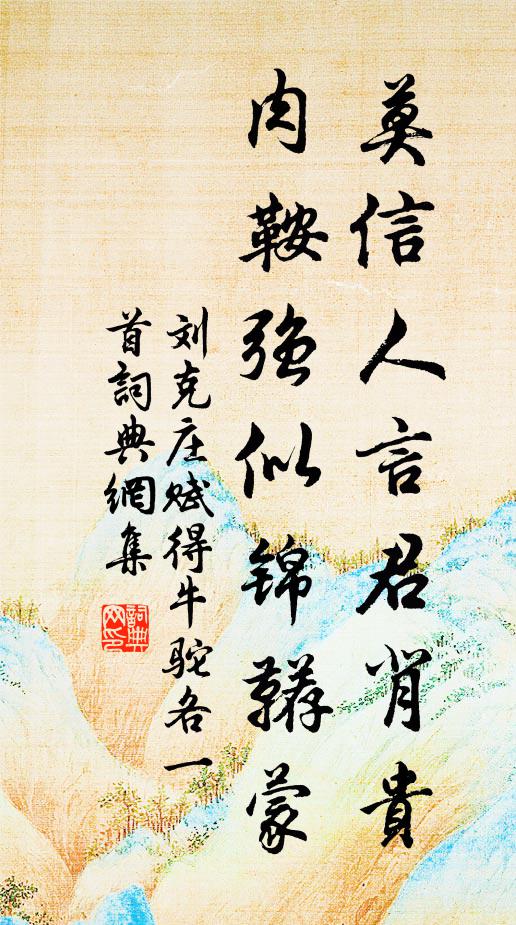 莫信人言君背貴
肉鞍強似錦韉蒙
刘克庄赋得牛駝各一
首詞典網集
詞典
网